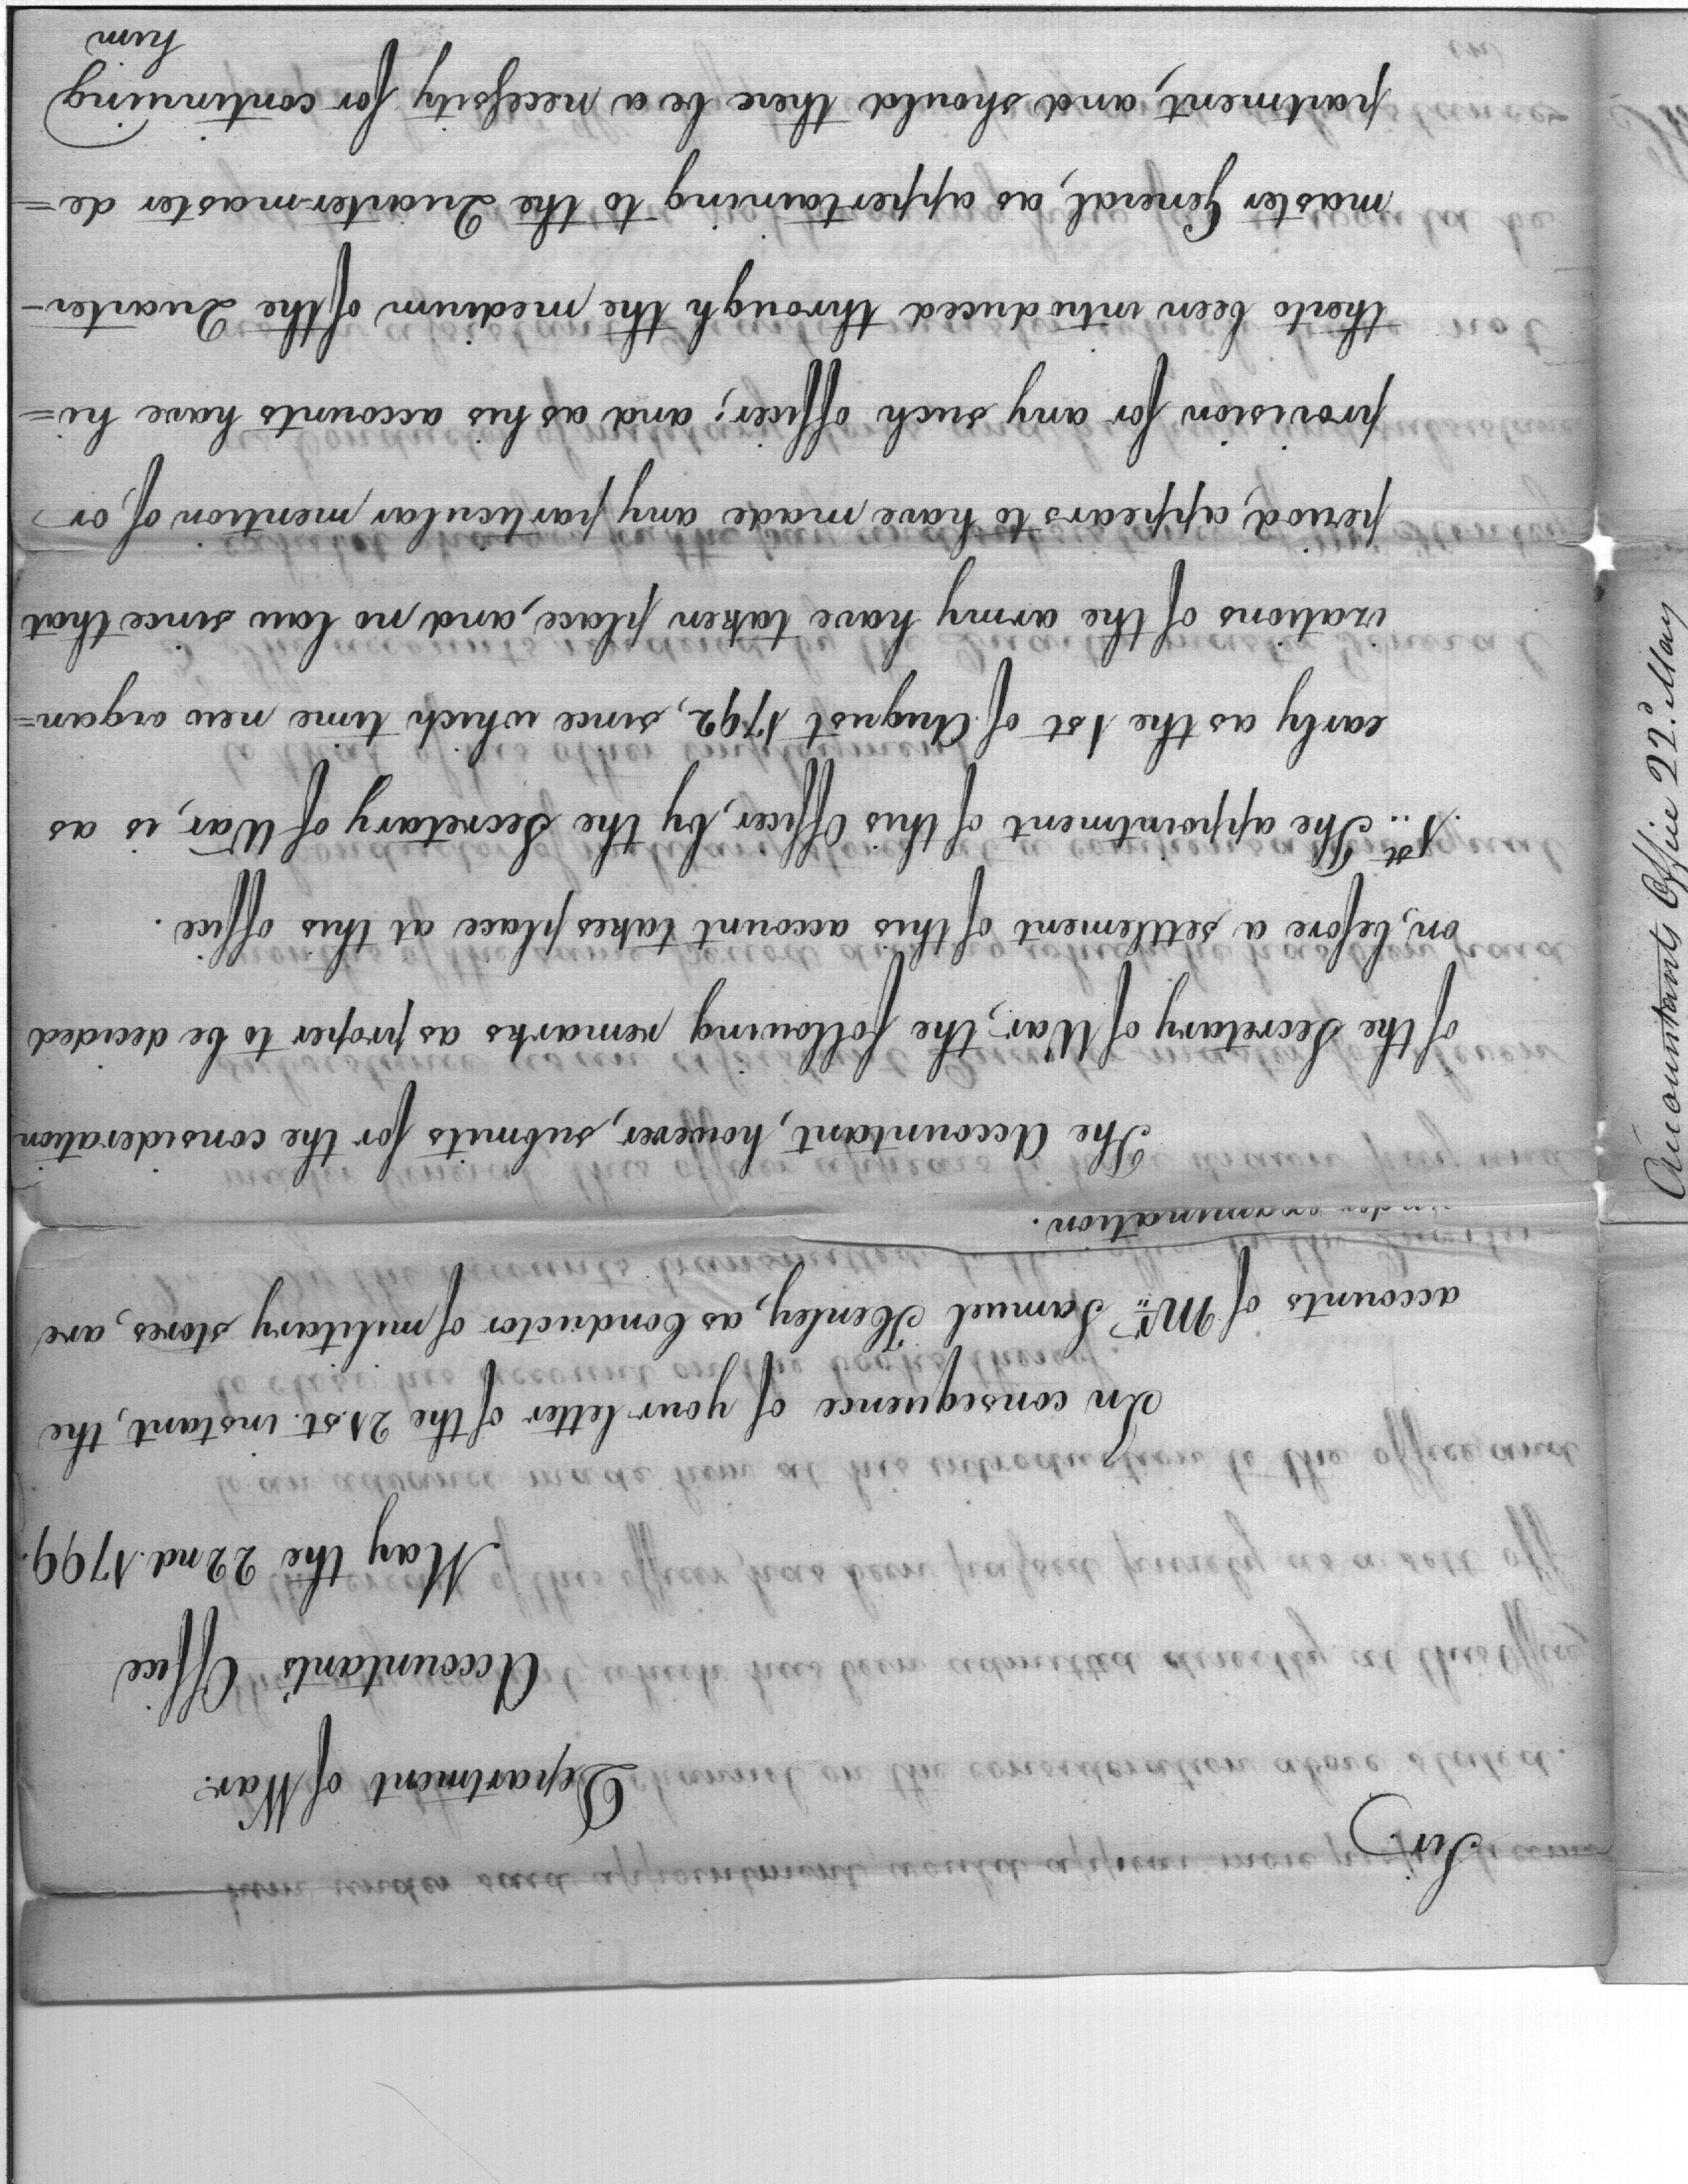 Department of War.
Accountants Office
May the 22nd. 1799.
Sir
In consequence of your letter of the 21.st. instant, the
accounts of Mr. Samuel Henley, as Conductor of military stores, are
under examination.
The Accountant, however, submits for the consideration
of the Secretary of War, the following remarks as proper to be decided
on, before a settlement of this account takes place at this office.
1st.. The appointment of this Officer, by the Secretary of War, is as
early as the 1st of August 1792, since which time new organ=
izations of the army have taken place, and no law since that
period, appears to have made any particular mention of, or
provision for any such officer; and as his accounts have hi=
therto been introduced through the medium of the Quarter-
master General, as appertaining to the Quarter-master de=
partment, and should there be a necessity for continuing
him
Accountants Office 22d. May